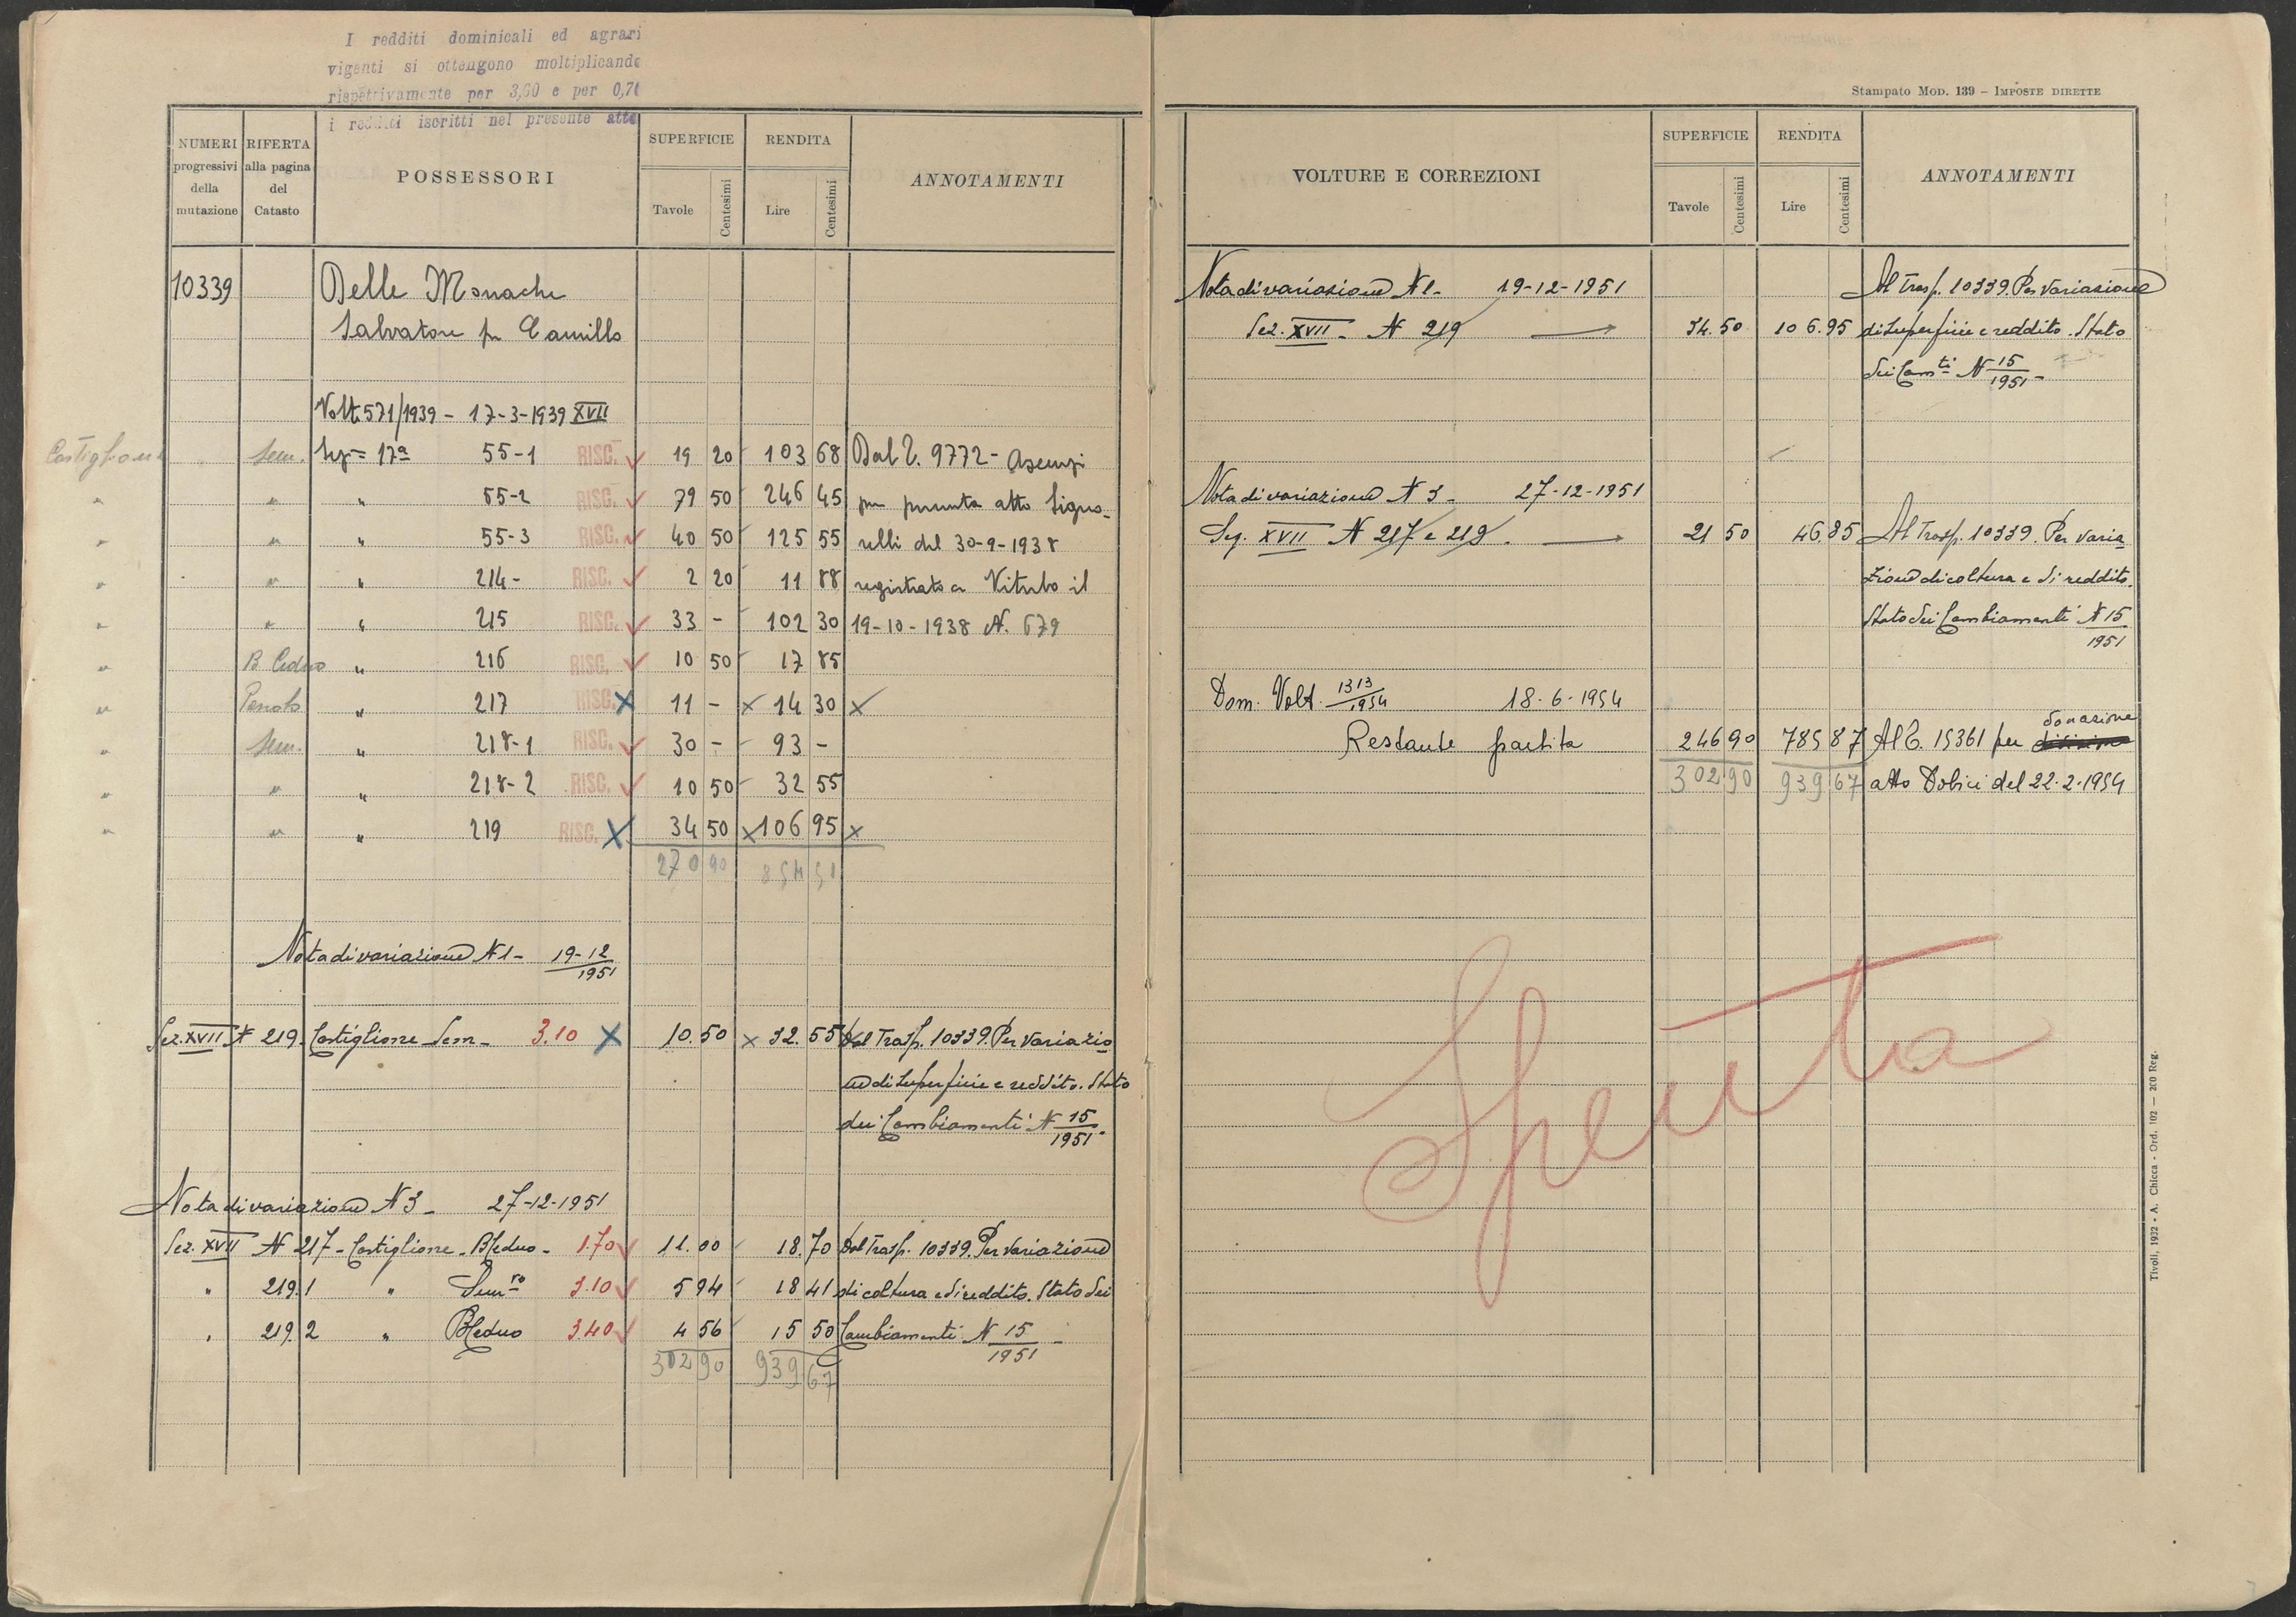 I redditi dominicali ed agrari
vigenti si ottengono moltiplicando
rispettivamente per 3,60 e per 0,70
i redditi iscritti nel presente atto
NUMERI progressivi della mutazione
RIFERTA alla pagina del Catasto
POSSESSORI
SUPERFICIE Tavole Centesimi
RENDITA Lire Centesimi
ANNOTAMENTI
10339 Delle Monache
Salvatore fu Camillo
Volt. 571/1939 - 17-3-1939 XVII
Castiglione Sem. Sez= 17a 55-1 RISC. 19 20 103 68 Dal T. 9772 - Assenzi
" " " 55-2 RISC. 79 50 246 45 per permuta atto Signo-
" " " 55-3 RISC. 40 50 125 55 relli del 30-9-1938
" " " 214- RISC. 2 20 11 88 registrato a Viterbo il
" " " 215 RISC. 33 - 102 30 19-10-1938 N. 679
" B Ceduo " 216 RISC. 10 50 17 85
" " 217 RISC. X 11 - x 14 30 x
" Sem. " 218-1 RISC. 30 - 93 -
" " " 218-2 RISC. 10 50 32 55
" " " 219 RISC. X 34 50 x 106 95 x
270 90 854 51
Nota di variazione N 1 - 19-12/1951
Sez. XVII N 219 Castiglione Sem - 3.10 X 10.50 x 32.55 Dal Trasp. 10339. Per variazio
ne di superficie e reddito. Stato
dei Cambiamenti N 15/1951.
Nota di variazione N 3 - 27-12-1951
Sez. XVII N 217 - Castiglione - B Ceduo - 1.70 11.00 18.70 Dal Trasp. 10339. Per variazione
" 219.1 " Semro 3.10 5 94 18 41 di coltura e di reddito. Stato dei
" 219.2 " B Ceduo 3.40 4 56 15 50 Cambiamenti N 15/1951 -
302 90 939 67
Stampato MOD. 139 – IMPOSTE DIRETTE
VOLTURE E CORREZIONI
SUPERFICIE Tavole Centesimi
RENDITA Lire Centesimi
ANNOTAMENTI
Nota di variazione N 1 - 19-12-1951 Al Trasp. 10339. Per variazione
Sez. XVII - N 219 34.50 106.95 di superficie e reddito. Stato
dei Camti N 15/1951 -
Nota di variazione N 3 - 27-12-1951
Sez. XVII N 217 e 219. 21 50 46.85 Al Trasp. 10339. Per varia
zione di coltura e di reddito.
Stato dei Cambiamenti N 15/1951
Dom. Volt. 1313/1954 18-6-1954
donazione
Restante partita 246 90 785 87 Al T. 15361 per divisione
302 90 939 67 atto Dobici del 22-2-1954
Spenta
Tivoli, 1932 - A. Chicca - Ord. 102 — 200 Reg.